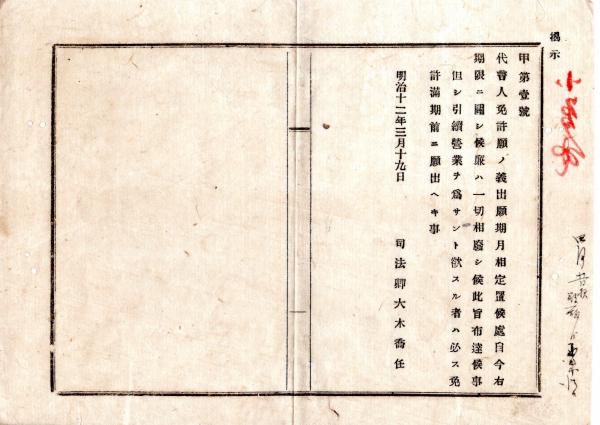 揭示
甲第壹號
代言人免許願ノ義出願期月相定置候處自今右
期限ニ關シ候廉ハ一切相廢シ候此旨布達候事
但シ引續營業ヲ爲サント欲スル者ハ必ス免
許滿期前ニ願出ヘキ事
明治十二年三月十九日
司法卿大木喬任